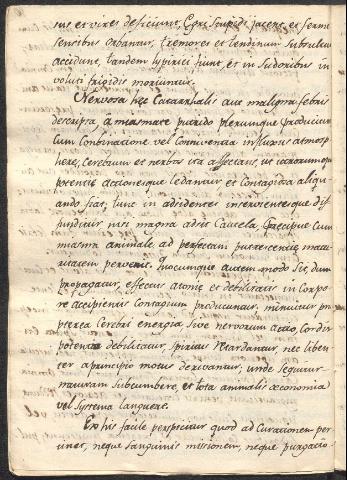 sus et vires deficiunt, Egri stupidi jacent, et sermo
sensibus orbantur, tremores et tendinum subsultus
accidunt, tandem lypirici fiunt, et in sudoribus in
voluti frigidis moriuntur.
Nervosa hec Catarrhalis aut maligna febris
descripta, a miasmate putrido plerumque producitur
cum Combinatione vel Connivenda influxus atmosp
here, Cerebrum et nerbos ita afficiens, ut
potentie actionesque ledantur, et Contagiosa aliqu
ando fiat, tunc in adsidentes inservientesque dif
funditur nisi magna adsit Cautela, precipue Cum
miasma animale ad perfectam putrescentie matu
ritatem pervenit. Quocumque autem modo sit, dum
propagatur, effectus atonie et debilitatis in Corpo
re accipientis Contagium producuntur, minuitur pro
pterea Cerebri energia, sive nervorum actio, Cordis
potentia debilitatur, spiritus retardantur, nec liben
ter a principio motus derivantur, unde sequitur
naturam subcumbere, et tota animalis œconomia
vel systema languere.
Ex his facile perspicitur quod ad Curationem per
tinet, neque sanguinis missionem, neque purgatio